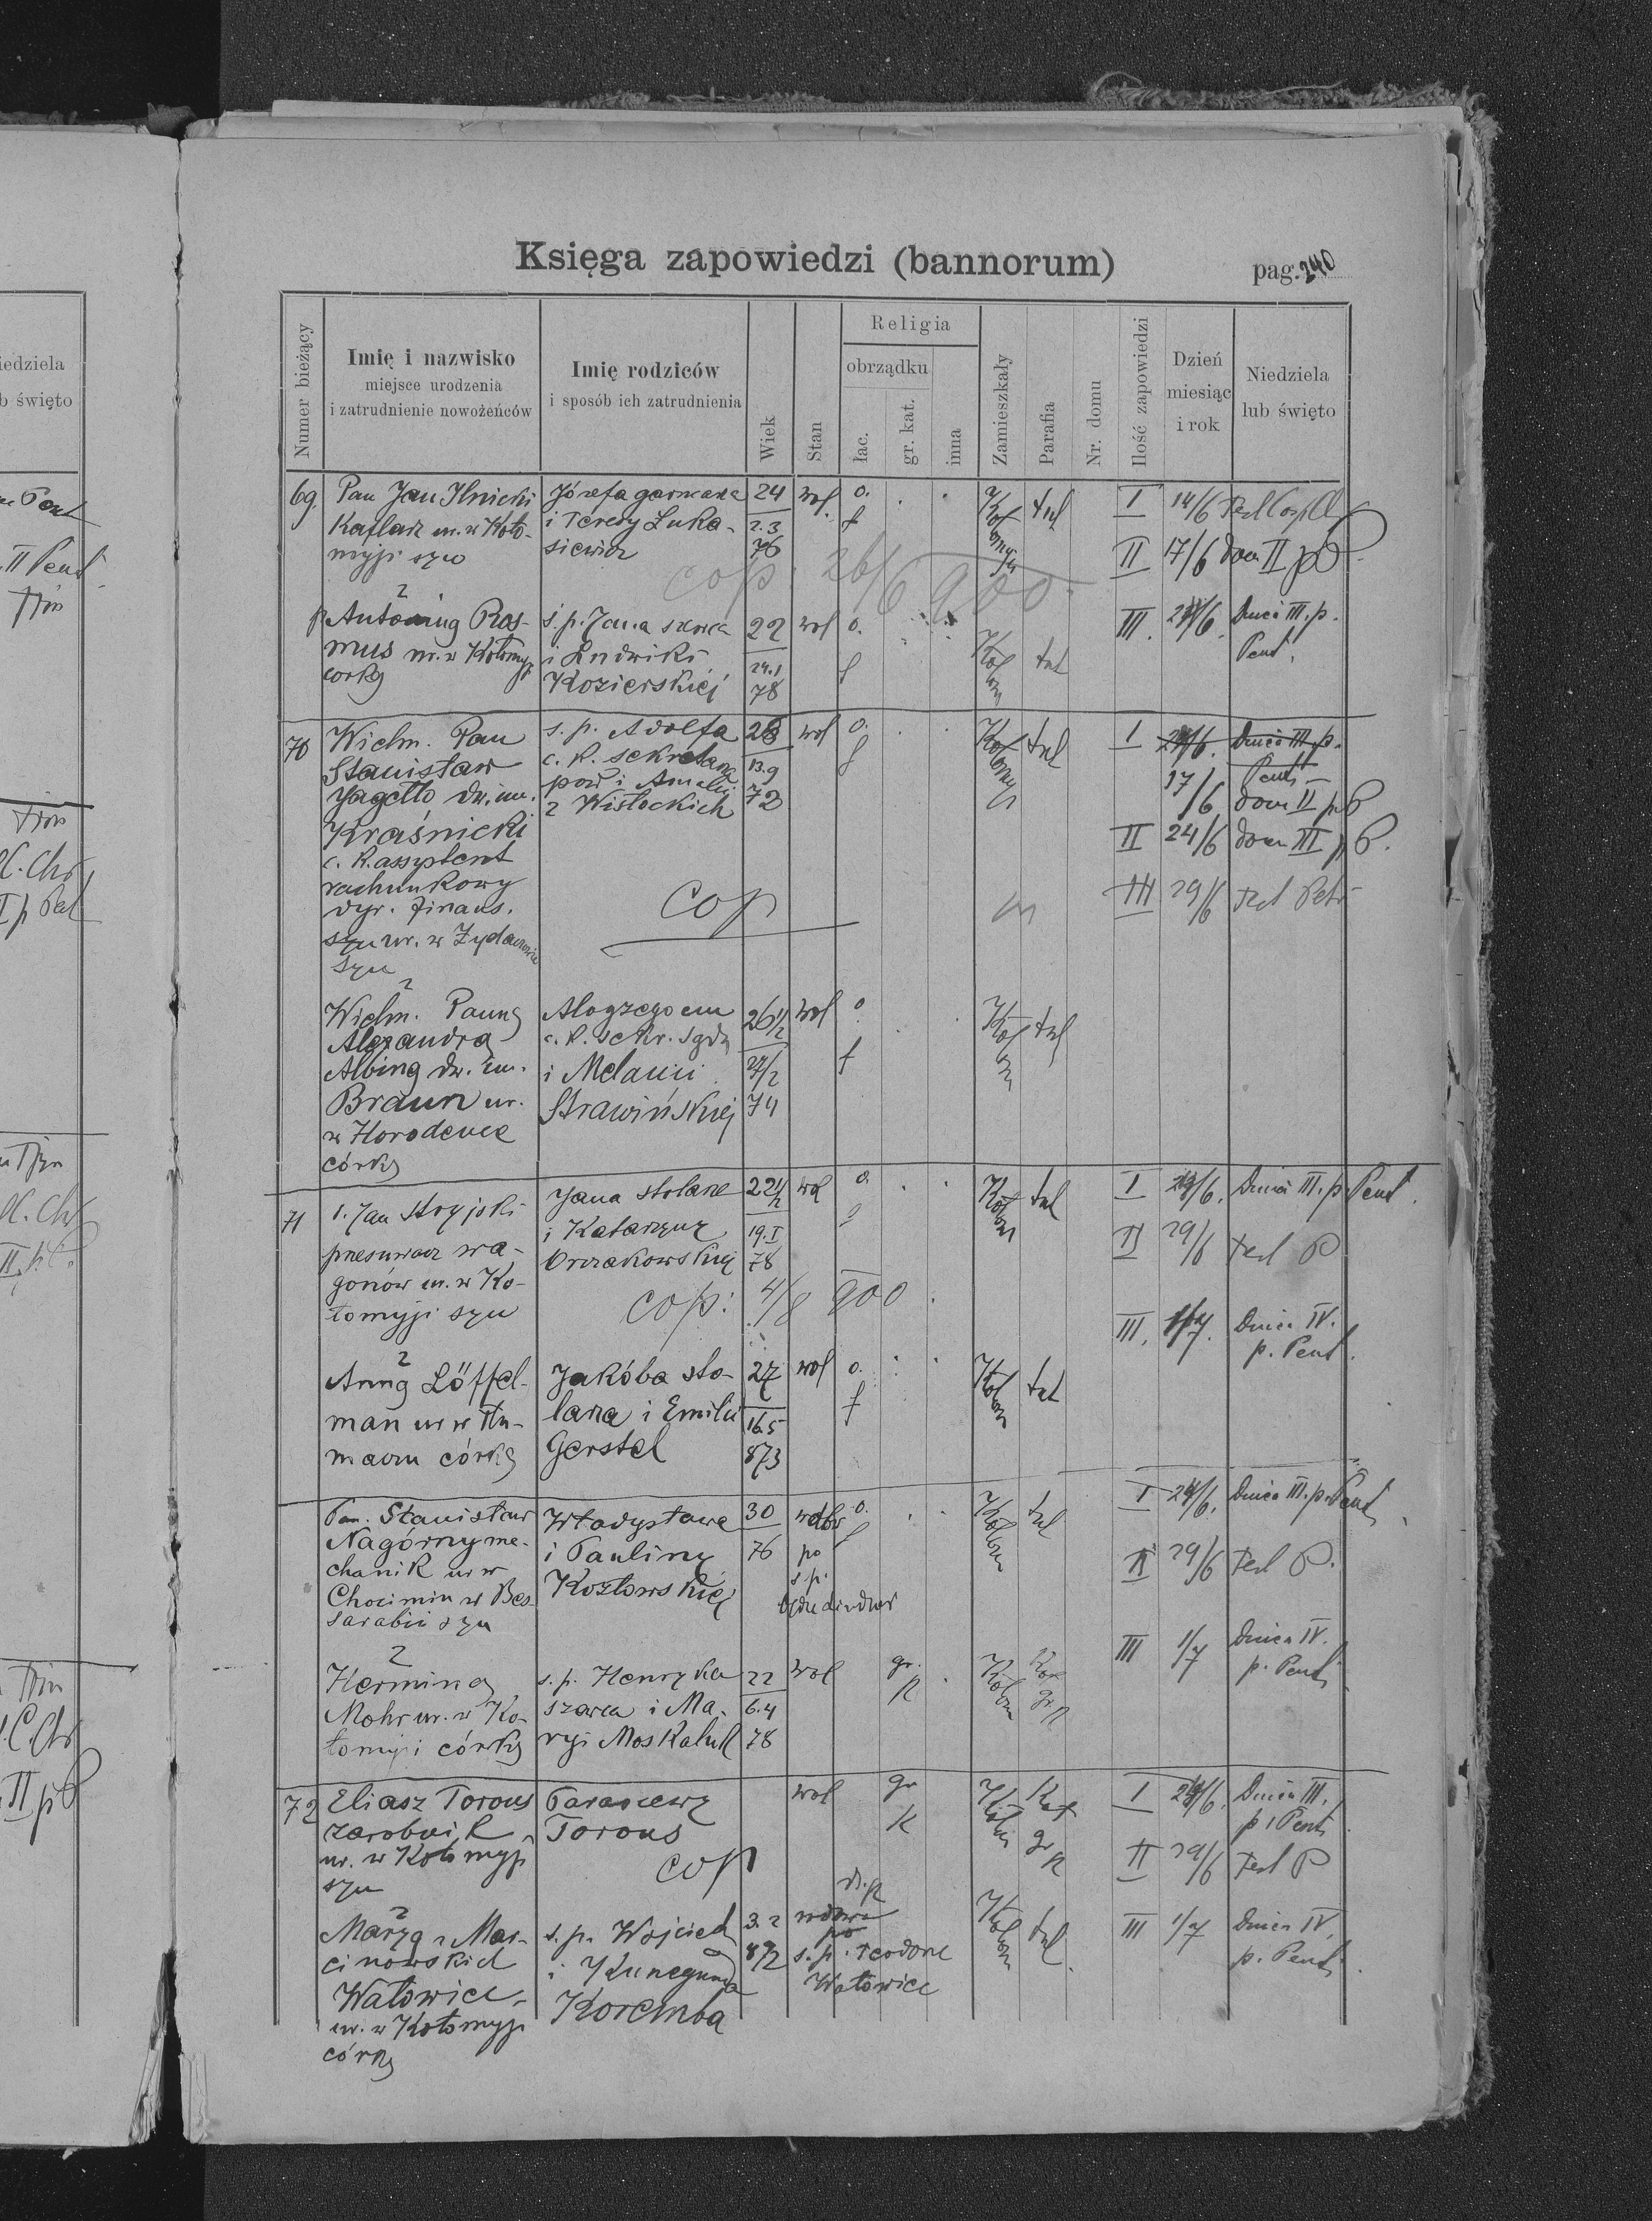 Księga zapowiedzi (bannorum)
pag. 240
Numer bieżący
Imię i nazwisko
miejsce urodzenia
i zatrudnienie nowożeńców
Imię rodziców
i sposób ich zatrudnienia
Wiek
Stan
Religia
obrządku
łac.
gr. kat.
inna
Zamieszkały
Parafia
Nr. domu
Ilość zapowiedzi
Dzień
miesiąc
i rok
Niedziela
lub święto
iedziela
b święto
69. Pan Jan Ilnicki
Kaflarz ur. w Koło-
myji syn
z
Józefa garncarza
i Teresy Łuka-
siewicz
24
2.3
76
wol.
Kołomyja
tut
I 14/6
II 17/6 Dom II p P
III. 24/6. Dnica III. p.
Pent.
cop. 26/6 900
Antoniną Ras-
mus ur. w Kołomyji
corką
ś. p. Jana szewca
i Ludwiki
Kozierskiej
22
24.1
78
wol
o.
Kołom
tut
70 Wielm. Pan
Stanisław
Jagełło dw. im.
Kraśnicki
c. k. assystent
rachunkowy
dyr. finans.
syn ur. w Żydaczowie
syn
z
s. p. Adolfa
c. k. sekretarza
pow i Amalii
z Wisłockich
28
13.9
72
wol
o.
Kołomyja
tut
I 24/6. Dnica III. p.
Pent
17/6 Dom II p P
II 24/6 Dom III p P.
III 29/6 Fest Petri
cop
Wielm. Panną
Alexandrą
Albiną dw. im.
Braun ur.
w Horodence
córką
c. k. sekr. sądu
i Melanii
Strawińskiej
26 1/2
27/2
74
wol
o
Kołom
tut
71 1. Jan Stryjski
przesuwacz wa-
gonów ur. w Ko-
łomyji syn
z
Jana stolarze
i Katarzyny
Orzakowskiej
22 1/2
19.I
78
wol
o.
Kołom
tut
I 24/6. Dnica III. p. Pent.
II 29/6 Fest P
III. 1/7. Dnica IV.
p. Pent.
cop: 4/8 900.
Anną Löffel-
man ur w Tłu-
maczu córką
Jakóba sto-
larza i Emilii
Gerstel
27
16.5
873
wol
o.
Kołom
tut
Pan. Stanisław
Nagórny me-
chanik ur w
Chocimiu w Bes
sarabii syn
z
Władysława
i Pauliny
Kozłowskiej
30
76
wdow
po
s. p.
o.
Kołom
tut
I 24/6. Dnica III. p. Pent
II 29/6 Fest P.
III 1/7 Dnica IV.
p. Pent
Herminą
Mohr ur. w Ko-
łomyji córką
s. p. Henryka
szewca i Ma-
ryi Moskaluk
22
6.4
78
wol
gr.
k
Kołom
gr. k
72 Eliasz Torous
zarobnik
ur. w Kołomyji
syn
z
Parascewy
Torous
wol
gr
k
Kołom
gr k
I 24/6. Dnica III.
p. Pent.
II 29/6 Fest P
III 1/7 Dnica IV.
p. Pent.
cop
Maryą z Mar-
cinowskich
Watowicz
ur. w Kołomyji
córką
s. p. Wojciech
i Kunegunda
Koremba
3.2
872
wdowa
po
s. p. Teodorze
Watowicz
Kołom
tut.